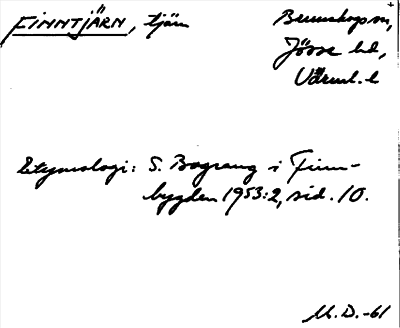 FINNTJÄRN, tjärn
Brunskogs sn,
Jösse hd,
Värml. l
Etymologi: S. Bograng i Finn-
bygden 1953:2, sid. 10.
M. D. -61